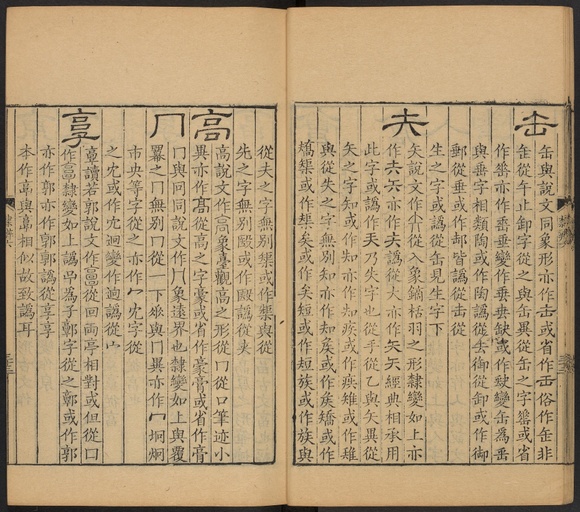 缶
缶與說文同象形亦作缶或省作击俗作缶非
缶從午止卸字從之與缶異從缶之字䍃或省
作䍃亦作䍃垂變作垂垂缺或作缺變缶爲垂
與垂字相類陶或作陶譌從缶御從卸或作御
郵從垂或作郵皆譌從缶從
生之字或譌從缶見生字下
夫
矢說文作矢從入象鏑栝羽之形隸變如上亦
作夫夭亦作夫譌從大亦作矢矢經典相承用
此字或譌作夭乃失字也從手從乙與矢異從
矢之字知或作知亦作知疾或作疾雉或作雉
與從失之字無別知亦作知矣或作矣矯或作
矯榘或作榘矣或作矣短或作短族或作族與
從夫之字無別榘或作榘與從
先之字無別殹或作殹譌從夫
高
高說文作高象臺觀高之形從冂從口筆迹小
異亦作髙從高之字豪或省作豪膏或省作膏
冂
冂與冋同說文作冂象遠界也隸變如上與覆
冪之冖無別冂從一下垂與冂異亦作冖坰炯
市央等字從之亦作冖冘字從
之冘或作冘迥變作逈譌從宀
享
𩫖讀若郭說文作𩫖從回兩亭相對或但從口
作𩫖隸變如上譌𠮛爲子郭字從之郭或作郭
亦作郭亦作郭郭譌從享享
本作亯與𩫖相似故致譌耳